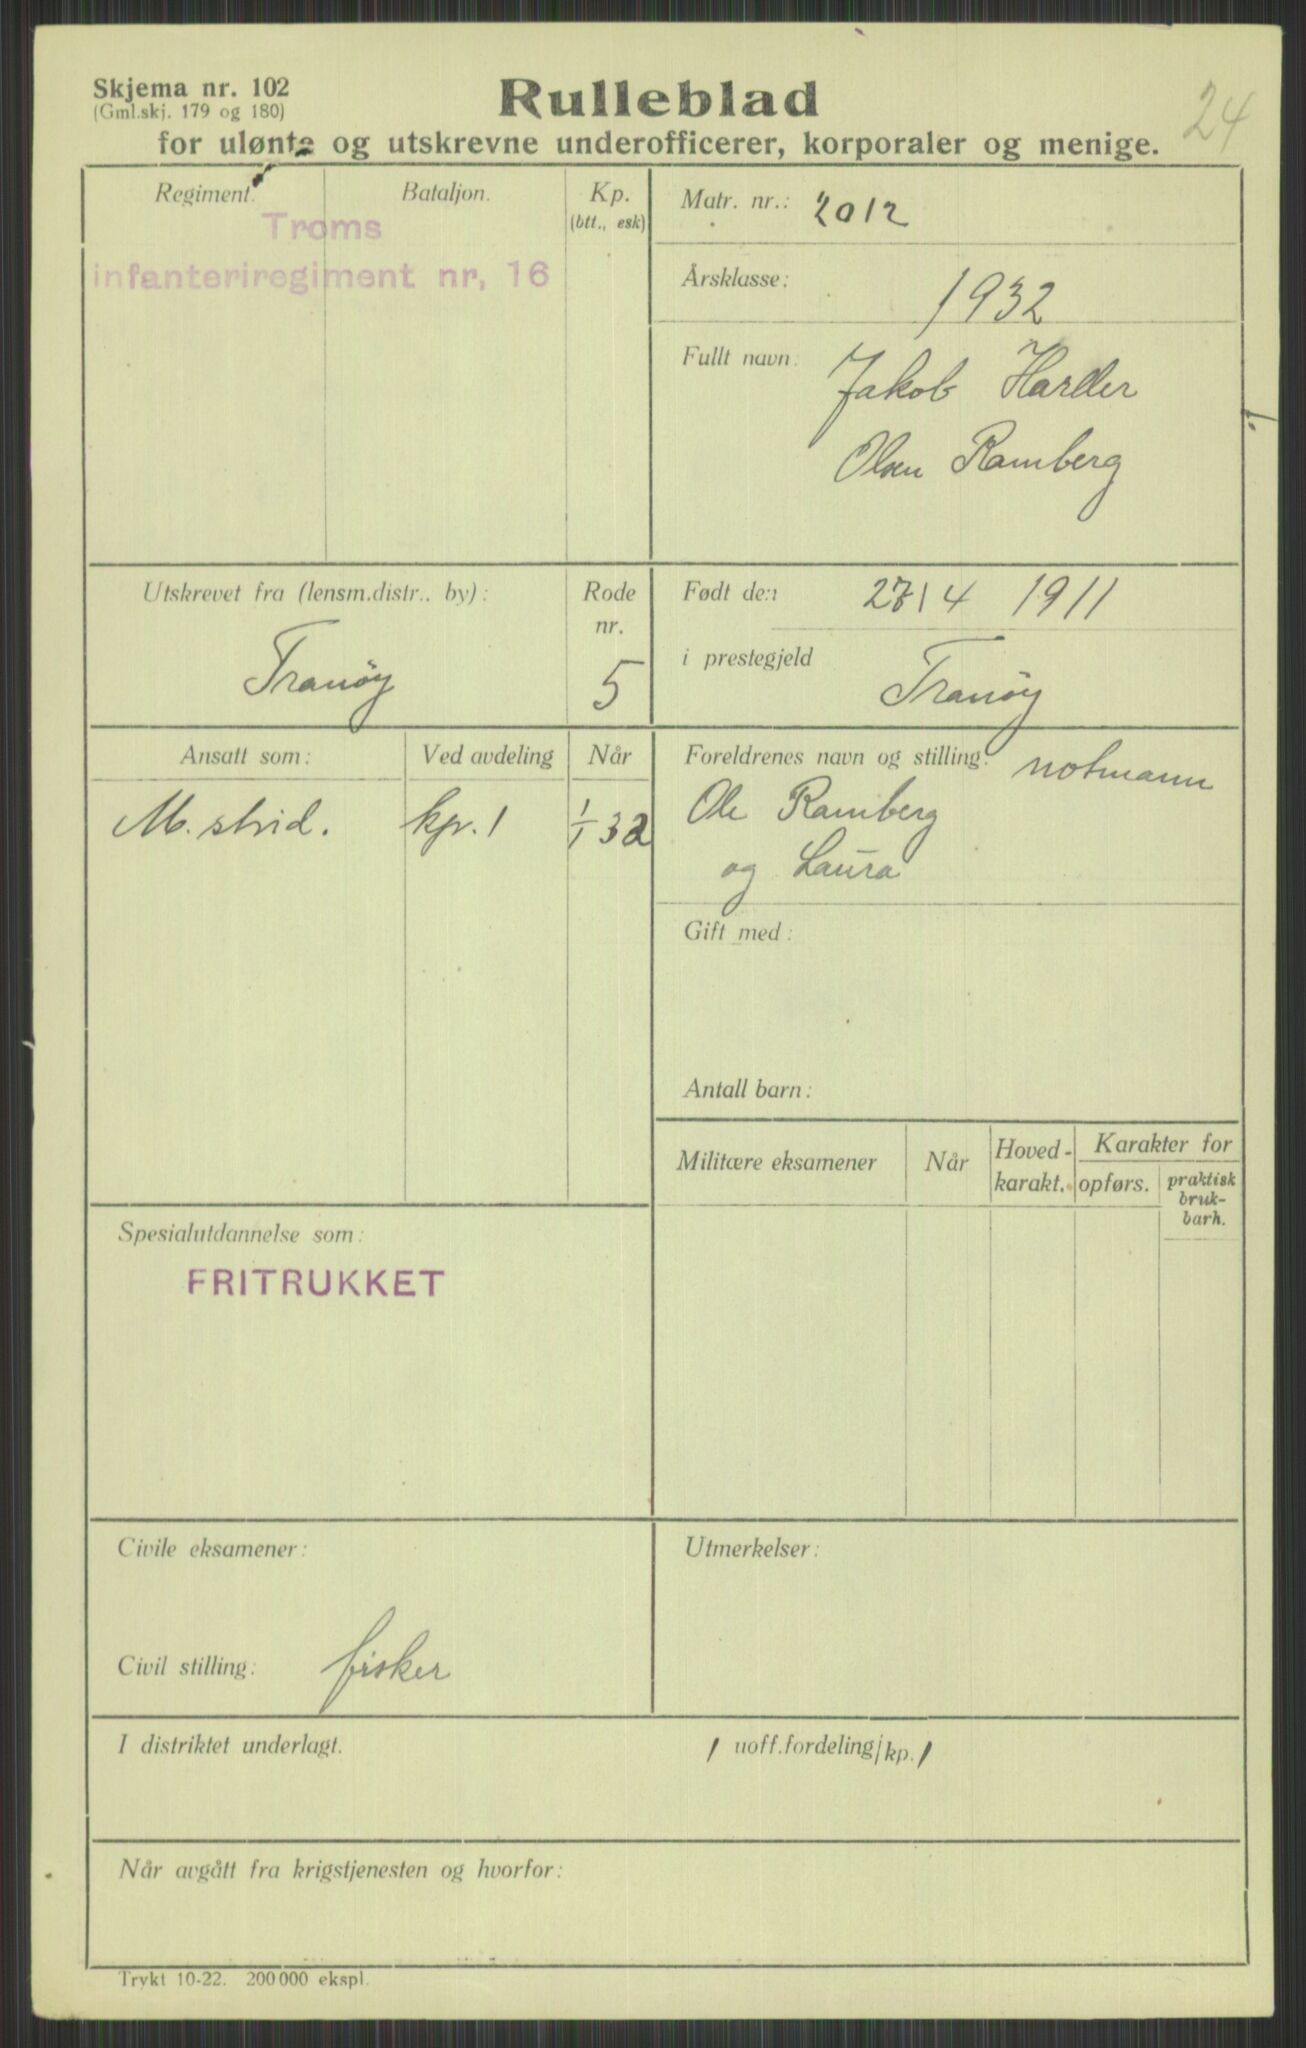 Skjema nr. 102
(Gml.skj. 179 og 180)
Rulleblad
24
for ulønte og utskrevne underofficerer, korporaler og menige.
Regiment.
Bataljon.
Kp.
(btt., esk)
Troms
infanteriregiment nr. 16
Matr. nr.: 2012
Årsklasse: 1932
Fullt navn: Jakob Harder
Olsen Ramberg
Utskrevet fra (lensm.distr.. by):
Tranöy
Rode
nr.
5
Født den 27/4 1911
i prestegjeld Tranöy
Ansatt som:
Ved avdeling
Når
M. strid.
kpr. 1
1/1 32
Foreldrenes navn og stilling: notmann
Ole Ramberg
og Laura
Gift med:
Antall barn:
Militære eksamener
Når
Hoved-
karakt.
Karakter for
opførs.
praktisk
bruk-
barh.
Spesialutdannelse som:
FRITRUKKET
Civile eksamener:
Civil stilling: fisker
Utmerkelser:
I distriktet underlagt.
1 uoff.fordeling/kp. 1
Når avgått fra krigstjenesten og hvorfor:
Trykt 10-22. 200 000 ekspl.